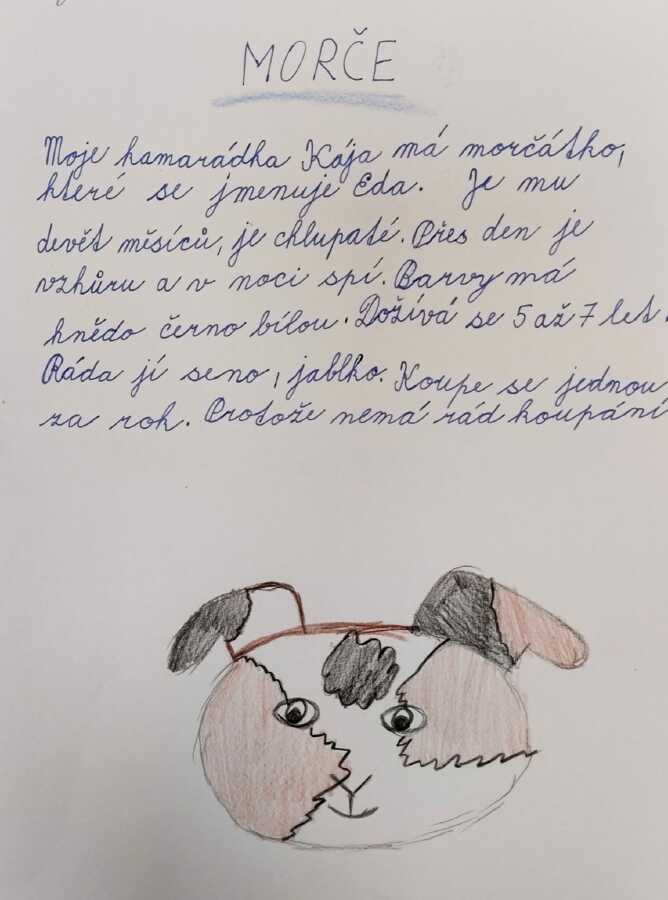 MORČE
Moje kamarádka Kája má morčátko,
které se jmenuje Eda. Je mu
devět měsíců, je chlupaté. Přes den je
vzhůru a v noci spí. Barvy má
hnědo černo bílou. Dožívá se 5 až 7 let.
Ráda jí seno, jablko. Koupe se jednou
za rok. Protože nemá rád koupání